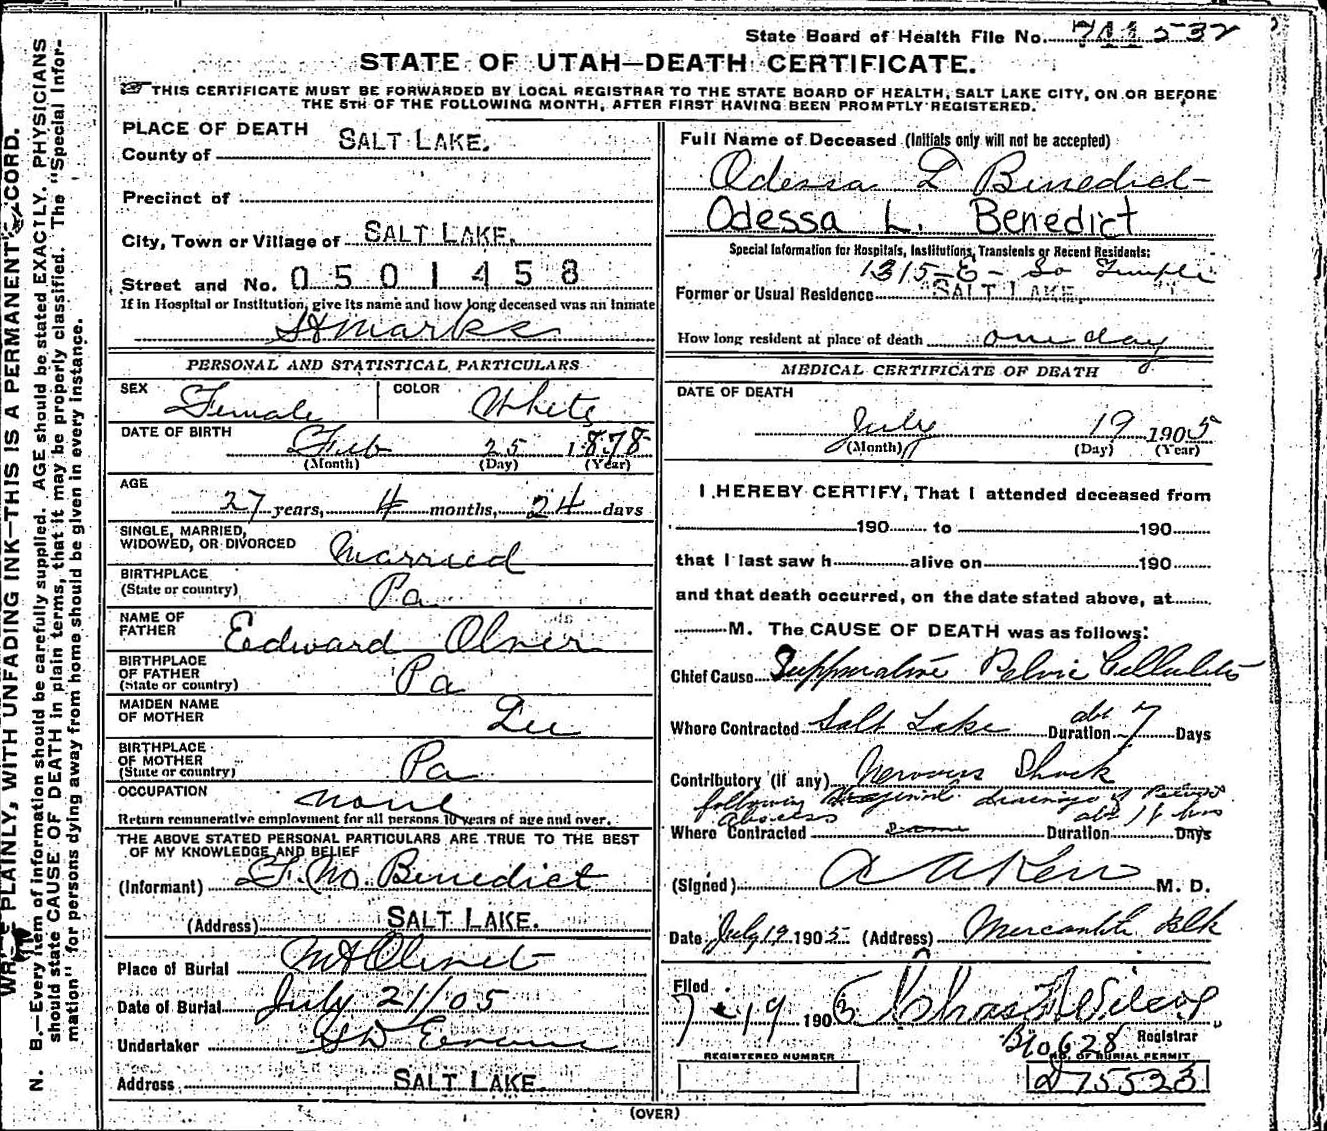 State Board of Health File No. 711532
STATE OF UTAH—DEATH CERTIFICATE.
THIS CERTIFICATE MUST BE FORWARDED BY LOCAL REGISTRAR TO THE STATE BOARD OF HEALTH, SALT LAKE CITY, ON OR BEFORE
THE 5TH OF THE FOLLOWING MONTH, AFTER FIRST HAVING BEEN PROMPTLY REGISTERED.
PLACE OF DEATH
County of SALT LAKE.
Precinct of
City, Town or Village of SALT LAKE.
Street and No. 0501458
If in Hospital or Institution, give its name and how long deceased was an inmate
St Marks
PERSONAL AND STATISTICAL PARTICULARS
SEX Female COLOR White
DATE OF BIRTH Feb 25 1878
(Month) (Day) (Year)
AGE 27 years, 4 months, 24 days
SINGLE, MARRIED,
WIDOWED, OR DIVORCED Married
BIRTHPLACE
(State or country) Pa
NAME OF
FATHER Edward Olner
BIRTHPLACE
OF FATHER
(State or country) Pa
MAIDEN NAME
OF MOTHER Lee
BIRTHPLACE
OF MOTHER
(State or country) Pa
OCCUPATION none
Return remunerative employment for all persons 10 years of age and over.
THE ABOVE STATED PERSONAL PARTICULARS ARE TRUE TO THE BEST
OF MY KNOWLEDGE AND BELIEF
(Informant) F. M. Benedict
(Address) SALT LAKE.
Place of Burial Mt Olivet
Date of Burial July 21/05
Undertaker Evans
Address SALT LAKE.
Full Name of Deceased (Initials only will not be accepted)
Odessa L Benedict
Odessa L. Benedict
Special Information for Hospitals, Institutions, Transients or Recent Residents:
1315-E-So Temple
Former or Usual Residence SALT LAKE.
How long resident at place of death one day
MEDICAL CERTIFICATE OF DEATH
DATE OF DEATH
July 19 1905
(Month) (Day) (Year)
I HEREBY CERTIFY, That I attended deceased from
190 to 190
that I last saw h alive on 190
and that death occurred, on the date stated above, at
M. The CAUSE OF DEATH was as follows:
Chief Cause Suppurative Pelvic Cellulitis
Where Contracted Salt Lake Duration abt 7 Days
Contributory (if any) Nervous Shock
following Vaginal drainage of Pelvic
Abscess abt
Where Contracted same Duration Days
(Signed) A A Kerr M. D.
Date July 19 1905 (Address) Mercantile Blk
Filed
7-19 1906
Registrar
B10628
REGISTERED NUMBER
NO. OF BURIAL PERMIT
D75528
(OVER)
N. B.—Every item of information should be carefully supplied. AGE should be stated EXACTLY. PHYSICIANS
should state CAUSE OF DEATH in plain terms, that it may be properly classified. The "Special Infor-
mation" for persons dying away from home should be given in every instance.
PLAINLY, WITH UNFADING INK—THIS IS A PERMANENT